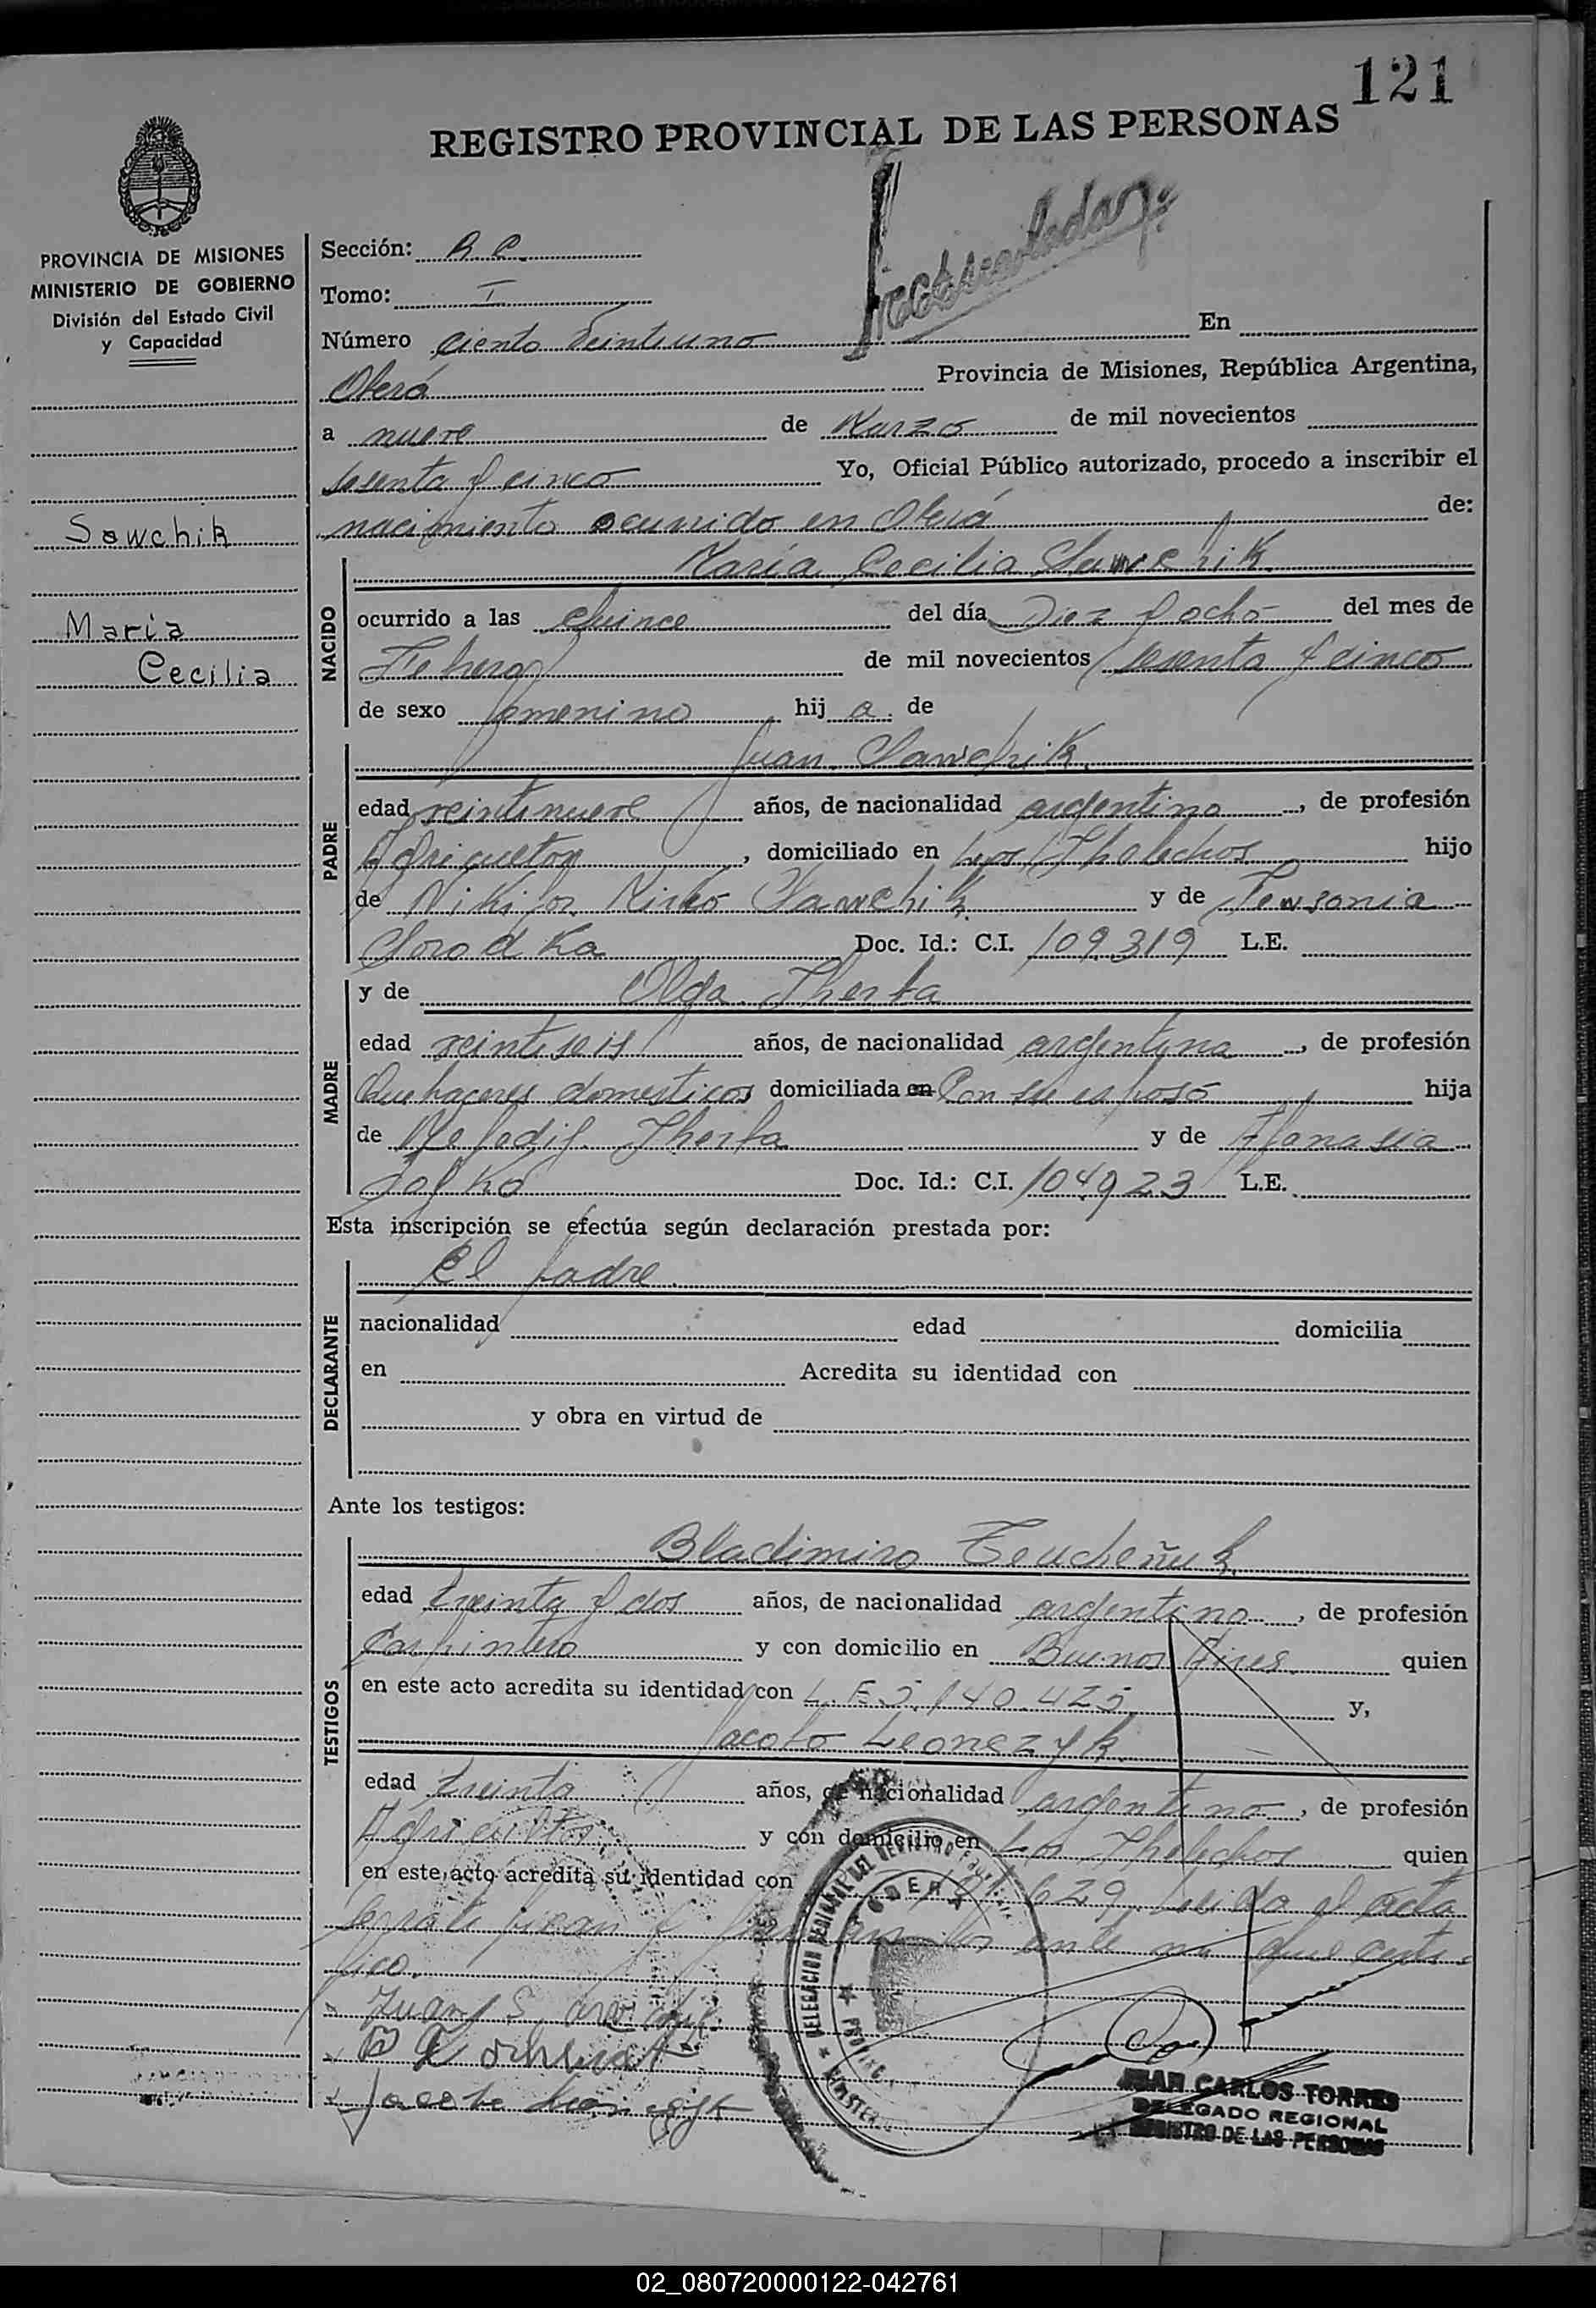 121
REGISTRO PROVINCIAL DE LAS PERSONAS
PROVINCIA DE MISIONES
MINISTERIO DE GOBIERNO
División del Estado Civil
y Capacidad
Sawchik
Maria
Cecilia
Sección: B. C.
Tomo: I
Número ciento veintiuno En
Oberá Provincia de Misiones, República Argentina,
a nueve de Marzo de mil novecientos
sesenta y cinco Yo, Oficial Público autorizado, procedo a inscribir el
nacimiento ocurrido en Oberá de:
NACIDO
María Cecilia Sawchik
ocurrido a las quince del día Diez y ocho del mes de
Febrero de mil novecientos sesenta y cinco
de sexo femenino hij a. de
PADRE
Juan Sawchik
edad veintinueve años, de nacionalidad argentino, de profesión
Agricultor, domiciliado en Los Helechos hijo
de Nikifor Sawchik y de
Doc. Id.: C.I. 109.319 L.E.
MADRE
y de Olga
edad veintiseis años, de nacionalidad argentina, de profesión
Quehaceres domesticos domiciliada en Con su esposo hija
de y de Afanasia
Doc. Id.: C.I. 104923 L.E.
Esta inscripción se efectúa según declaración prestada por:
DECLARANTE
El padre.
nacionalidad edad domicilia
en Acredita su identidad con
y obra en virtud de
Ante los testigos:
TESTIGOS
Bladimiro
edad treinta y dos años, de nacionalidad argentino, de profesión
Carpintero y con domicilio en Buenos Aires quien
en este acto acredita su identidad con L.E. 5.140.425 y,
Jacobo Leonczyk
edad treinta años, de nacionalidad argentino, de profesión
Agricultor y con domicilio en Los Helechos quien
en este acto acredita su identidad con 629. Leido el acta
se ratifican y ante mi que certi-
fico.
Juan
Jacobo
DELEGACION REGIONAL DEL REGISTRO
OBERA
JUAN CARLOS TORRES
DELEGADO REGIONAL
REGISTRO DE LAS PERSONAS
02_080720000122-042761